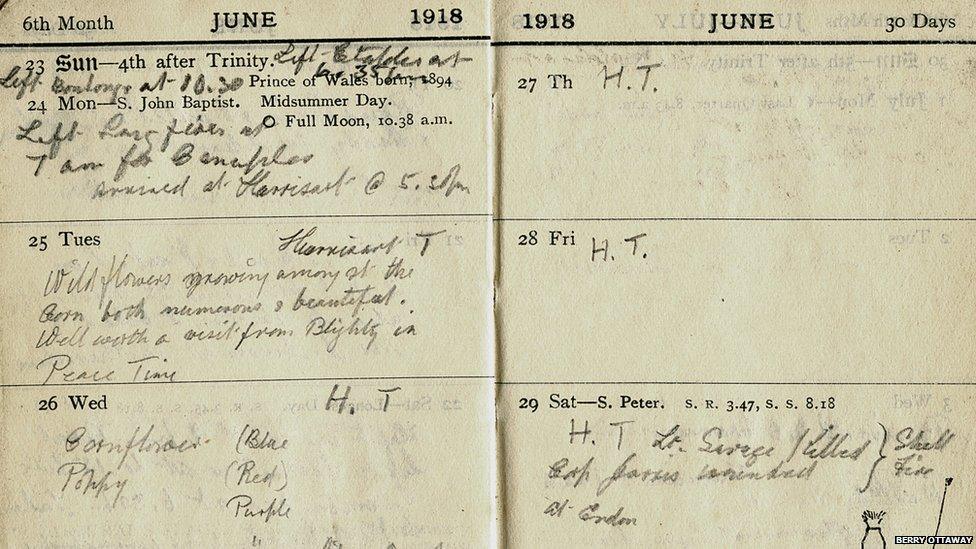 6th Month JUNE 1918
23 Sun—4th after Trinity. Left Etaples at
Left Boulogne at 10.30 Prince of Wales born, 1894
24 Mon—S. John Baptist. Midsummer Day.
Full Moon, 10.38 a.m.
Left at
7 am for
arrived at Harrisart @ 5.30pm
25 Tues Harrisart T
Wild flowers growing amongst the
Corn both numerous & beautiful.
Well worth a visit from Blighty in
Peace Time
26 Wed H. T
Cornflower (Blue
Poppy (Red)
Purple
1918 JUNE 30 Days
27 Th H. T.
28 Fri H. T.
29 Sat—S. Peter. S. R. 3.47, S. S. 8.18
H. T Lt. Savage Killed } Shell
Corp Jarvis wounded } Fire
at
BERRY OTTAWAY